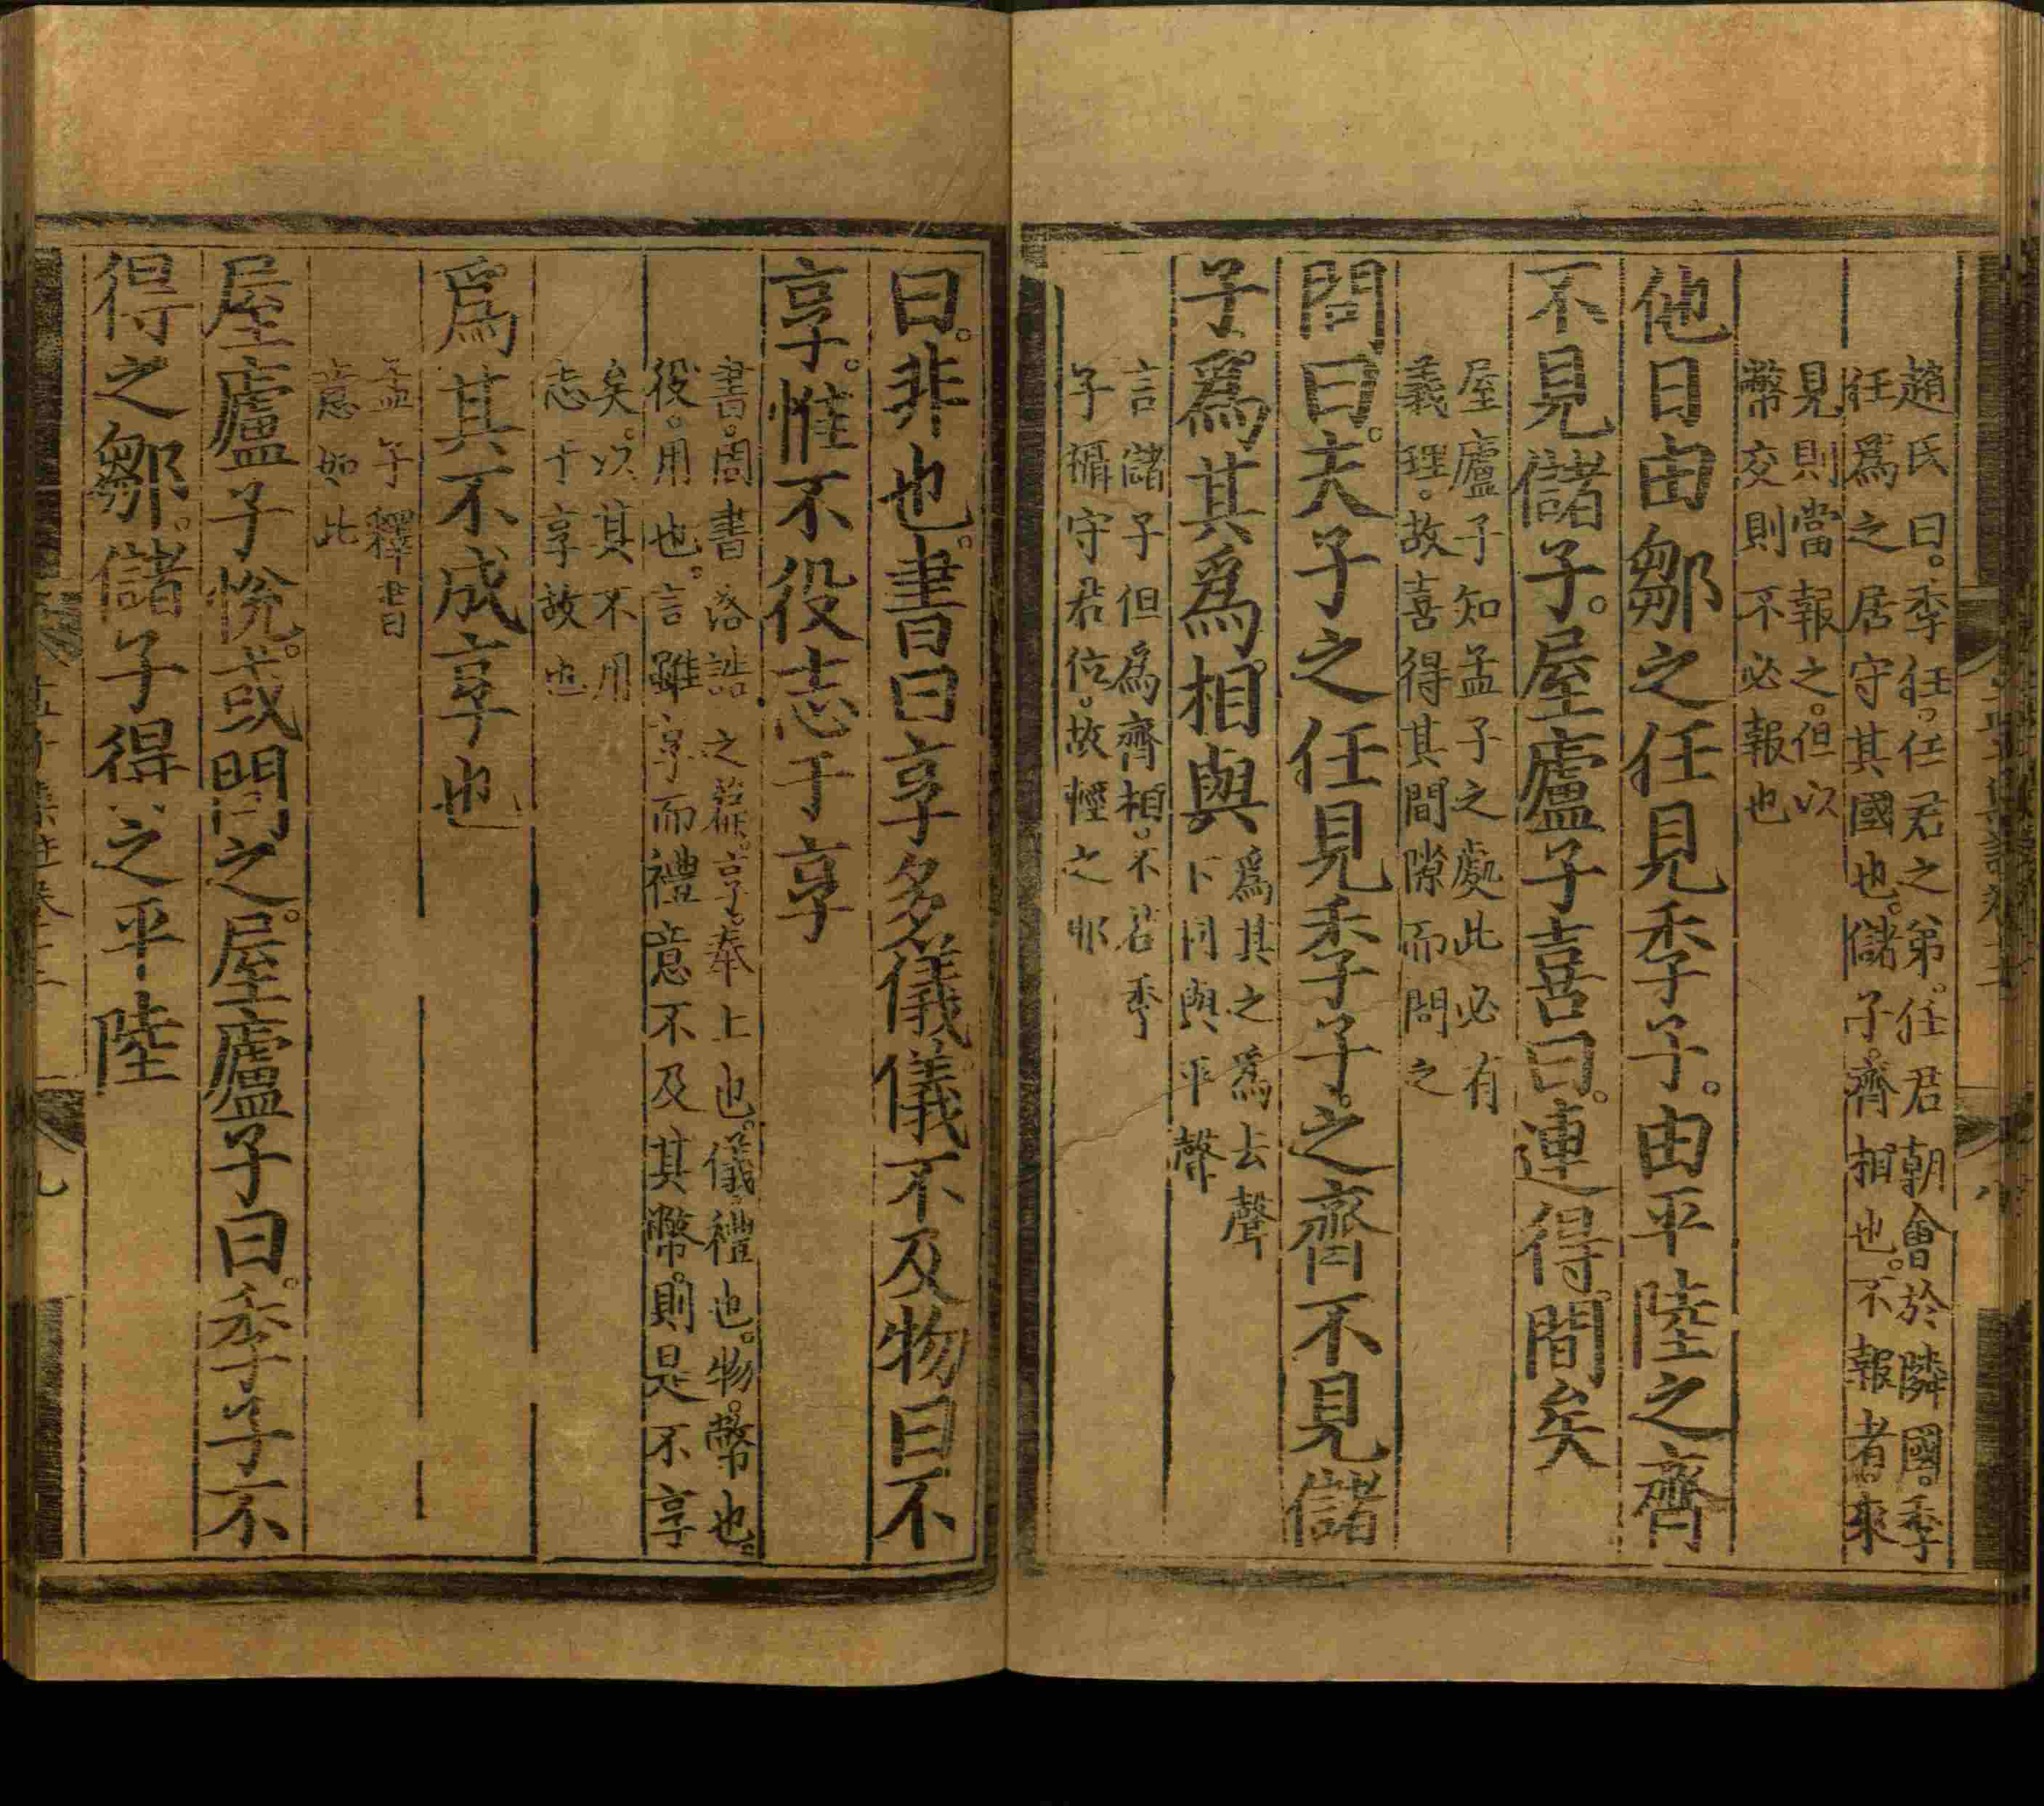 趙氏曰。季任。任君之弟。任君朝會於隣國。季
任爲之居守其國也。儲子。齊相也。不報者。來
見則當報之。但以
幣交則不必報也
他日由鄒之任見季子。由平陸之齊
不見儲子。屋廬子喜曰。連得間矣
屋廬子知孟子之處此必有
義理。故喜得其間隙而問之
問曰。夫子之任見季子。之齊不見儲
子。爲其爲相與
爲其之爲去聲
下同與平聲
言儲子但爲齊相。不若季
子攝守君位。故輕之邪
曰。非也。書曰享多儀儀不及物曰不
享。惟不役志于享
書。周書洛誥之篇。享。奉上也。儀禮也。物。幣也。
役。用也。言雖享而禮意不及其幣。則是不享
矣。以其不用
志于享故也
爲其不成享也
孟子釋書
意如此
屋廬子悅。或問之。屋廬子曰。季子不
得之鄒。儲子得之平陸